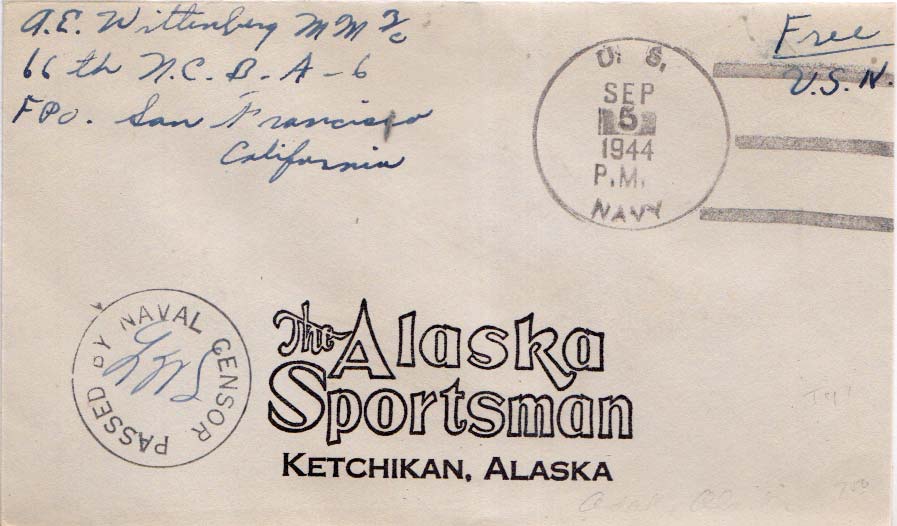 A.E. Wittenberg MM 2/c
66th N.C.B. A-6
FPO. San Francisco
California
Free
U.S.N.
U. S.
SEP
5
1944
P.M.
NAVY
PASSED BY NAVAL CENSOR
The Alaska
Sportsman
KETCHIKAN, ALASKA